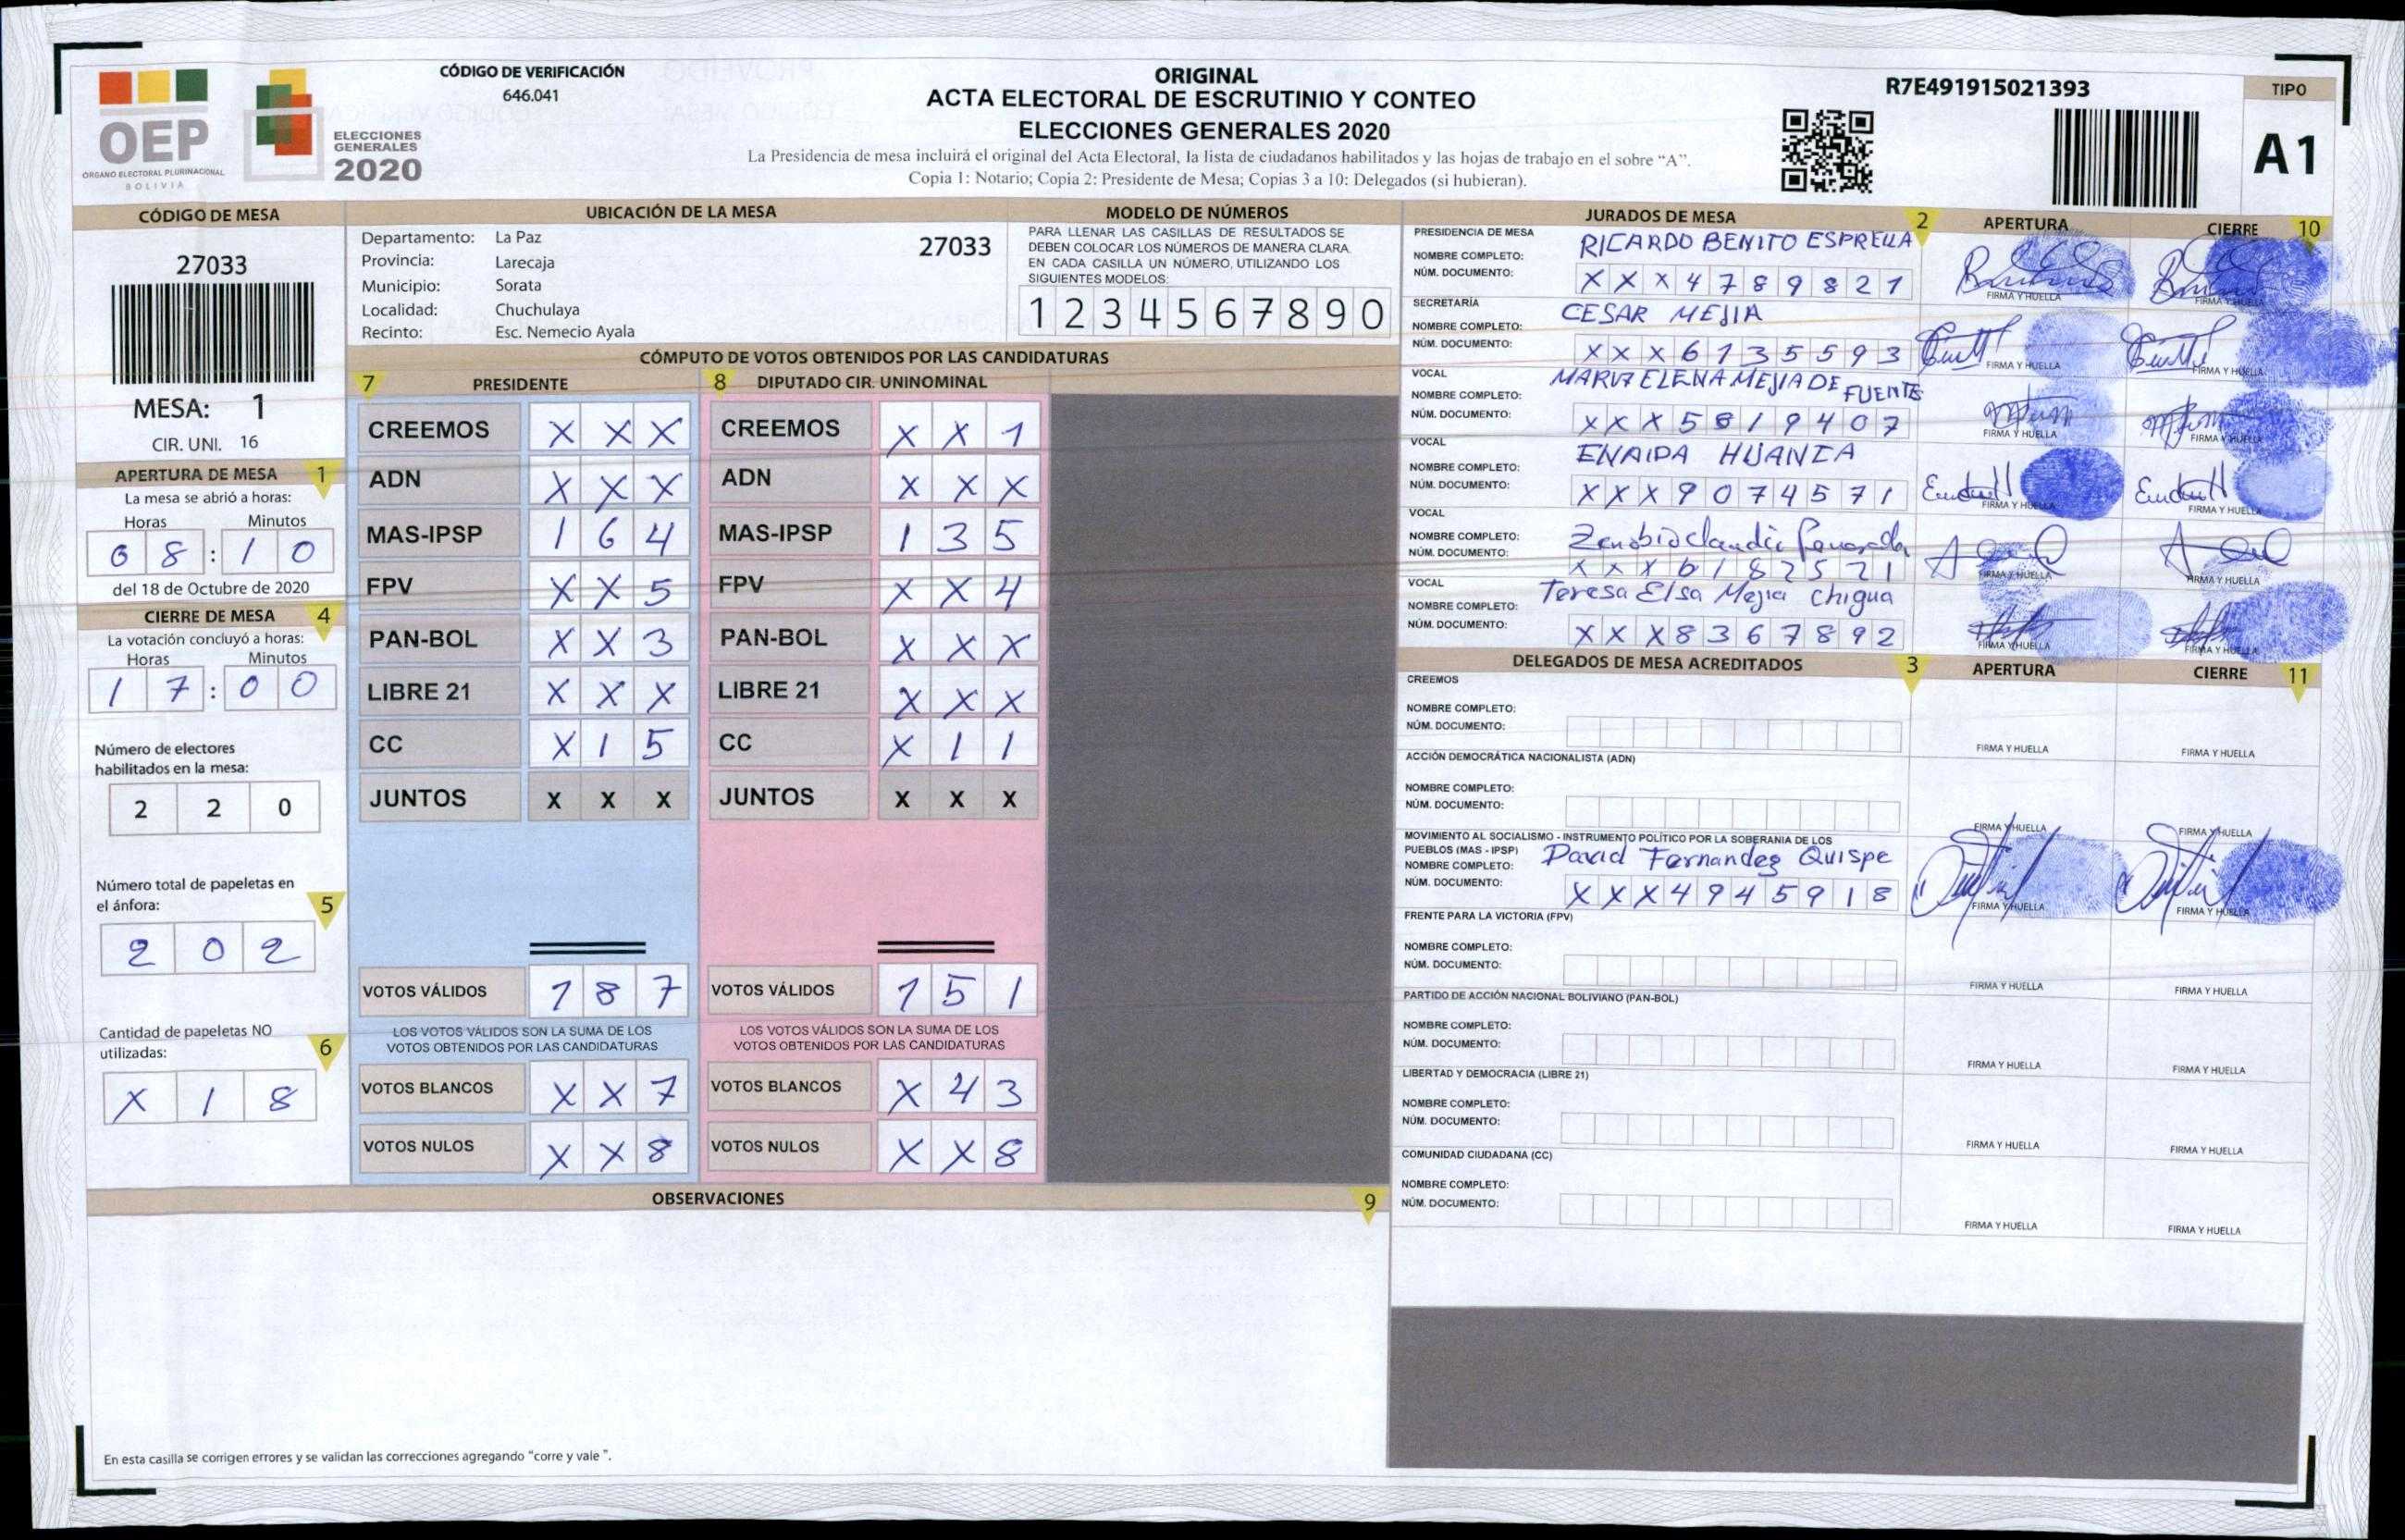 OEP
ÓRGANO ELECTORAL PLURINACIONAL
BOLIVIA
ELECCIONES
GENERALES
2020
CÓDIGO DE VERIFICACIÓN
646.041
ORIGINAL
ACTA ELECTORAL DE ESCRUTINIO Y CONTEO
ELECCIONES GENERALES 2020
La Presidencia de mesa incluirá el original del Acta Electoral, la lista de ciudadanos habilitados y las hojas de trabajo en el sobre “A”.
Copia 1: Notario; Copia 2: Presidente de Mesa; Copias 3 a 10: Delegados (si hubieran).
R7E491915021393
TIPO
A1
CÓDIGO DE MESA
27033
MESA: 1
CIR. UNI. 16
APERTURA DE MESA 1
La mesa se abrió a horas:
Horas Minutos
0 8 : 1 0
del 18 de Octubre de 2020
CIERRE DE MESA 4
La votación concluyó a horas:
Horas Minutos
1 7 : 0 0
Número de electores
habilitados en la mesa:
2 2 0
Número total de papeletas en
el ánfora: 5
2 0 2
Cantidad de papeletas NO
utilizadas: 6
X 1 8
UBICACIÓN DE LA MESA
Departamento: La Paz 27033
Provincia: Larecaja
Municipio: Sorata
Localidad: Chuchulaya
Recinto: Esc. Nemecio Ayala
MODELO DE NÚMEROS
PARA LLENAR LAS CASILLAS DE RESULTADOS SE
DEBEN COLOCAR LOS NÚMEROS DE MANERA CLARA.
EN CADA CASILLA UN NÚMERO, UTILIZANDO LOS
SIGUIENTES MODELOS:
1 2 3 4 5 6 7 8 9 0
CÓMPUTO DE VOTOS OBTENIDOS POR LAS CANDIDATURAS
7 PRESIDENTE 8 DIPUTADO CIR. UNINOMINAL
CREEMOS X X X CREEMOS X X 1
ADN X X X ADN X X X
MAS-IPSP 1 6 4 MAS-IPSP 1 3 5
FPV X X 5 FPV X X 4
PAN-BOL X X 3 PAN-BOL X X X
LIBRE 21 X X X LIBRE 21 X X X
CC X 1 5 CC X 1 1
JUNTOS X X X JUNTOS X X X
VOTOS VÁLIDOS 1 8 7 VOTOS VÁLIDOS 1 5 1
LOS VOTOS VÁLIDOS SON LA SUMA DE LOS LOS VOTOS VÁLIDOS SON LA SUMA DE LOS
VOTOS OBTENIDOS POR LAS CANDIDATURAS VOTOS OBTENIDOS POR LAS CANDIDATURAS
VOTOS BLANCOS X X 7 VOTOS BLANCOS X 4 3
VOTOS NULOS X X 8 VOTOS NULOS X X 8
OBSERVACIONES 9
En esta casilla se corrigen errores y se validan las correcciones agregando “corre y vale ”.
JURADOS DE MESA 2 APERTURA CIERRE 10
PRESIDENCIA DE MESA
NOMBRE COMPLETO: RICARDO BENITO ESPRELLA
NÚM. DOCUMENTO: X X X 4 7 8 9 8 2 1
FIRMA Y HUELLA FIRMA Y HUELLA
SECRETARÍA
NOMBRE COMPLETO: CESAR MEJIA
NÚM. DOCUMENTO: X X X 6 1 3 5 5 9 3
FIRMA Y HUELLA FIRMA Y HUELLA
VOCAL
NOMBRE COMPLETO: ELENA MEJIA DE FUENTE
NÚM. DOCUMENTO: X X X 5 8 1 9 4 0 7
FIRMA Y HUELLA FIRMA Y HUELLA
VOCAL
NOMBRE COMPLETO: ENAIDA HUANCA
NÚM. DOCUMENTO: X X X 9 0 7 4 5 7 1
FIRMA Y HUELLA FIRMA Y HUELLA
VOCAL
NOMBRE COMPLETO: Zenobio Claudio
NÚM. DOCUMENTO: X X X 6 1 8 2 5 2 1
FIRMA Y HUELLA FIRMA Y HUELLA
VOCAL
NOMBRE COMPLETO: Teresa Elsa Mejia Chigua
NÚM. DOCUMENTO: X X X 8 3 6 7 8 9 2
FIRMA Y HUELLA FIRMA Y HUELLA
DELEGADOS DE MESA ACREDITADOS 3 APERTURA CIERRE 11
CREEMOS
NOMBRE COMPLETO:
NÚM. DOCUMENTO:
FIRMA Y HUELLA FIRMA Y HUELLA
ACCIÓN DEMOCRÁTICA NACIONALISTA (ADN)
NOMBRE COMPLETO:
NÚM. DOCUMENTO:
FIRMA Y HUELLA FIRMA Y HUELLA
MOVIMIENTO AL SOCIALISMO - INSTRUMENTO POLÍTICO POR LA SOBERANIA DE LOS
PUEBLOS (MAS - IPSP)
NOMBRE COMPLETO: David Fernandez Quispe
NÚM. DOCUMENTO: X X X 4 9 4 5 9 1 8
FIRMA Y HUELLA FIRMA Y HUELLA
FRENTE PARA LA VICTORIA (FPV)
NOMBRE COMPLETO:
NÚM. DOCUMENTO:
FIRMA Y HUELLA FIRMA Y HUELLA
PARTIDO DE ACCIÓN NACIONAL BOLIVIANO (PAN-BOL)
NOMBRE COMPLETO:
NÚM. DOCUMENTO:
FIRMA Y HUELLA FIRMA Y HUELLA
LIBERTAD Y DEMOCRACIA (LIBRE 21)
NOMBRE COMPLETO:
NÚM. DOCUMENTO:
FIRMA Y HUELLA FIRMA Y HUELLA
COMUNIDAD CIUDADANA (CC)
NOMBRE COMPLETO:
NÚM. DOCUMENTO:
FIRMA Y HUELLA FIRMA Y HUELLA